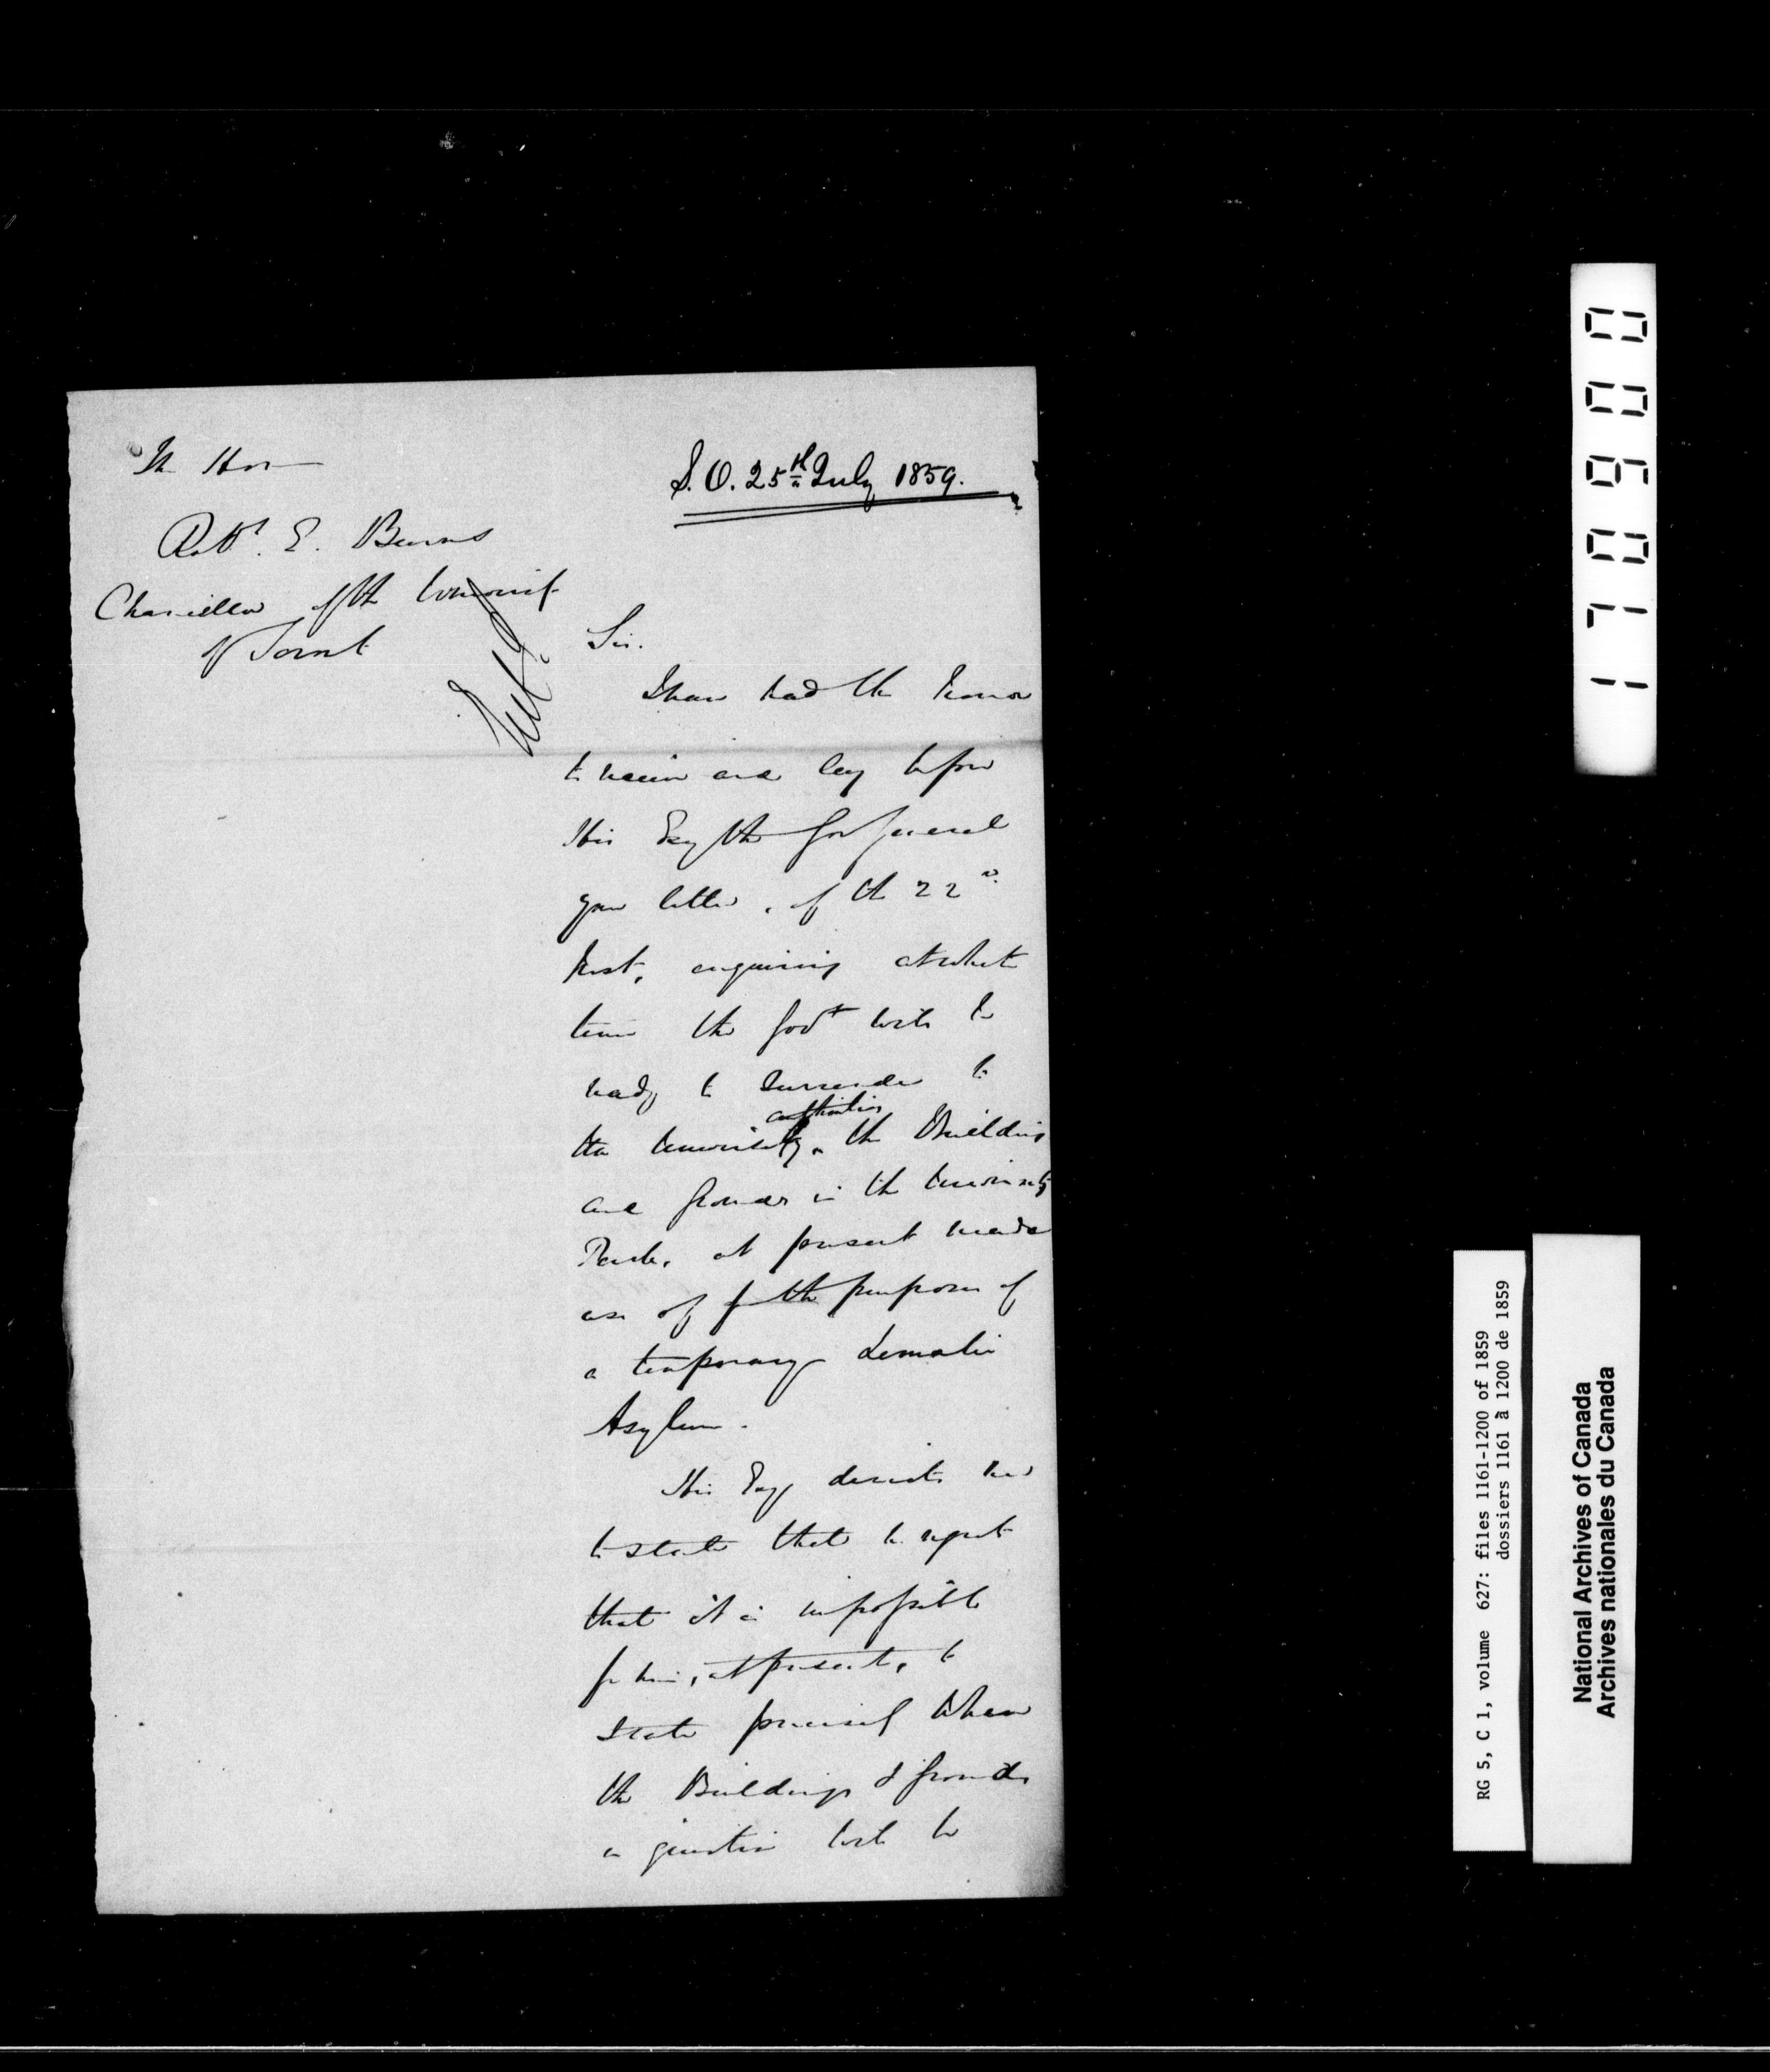 The Hon
Robt. E. Burns
Chancellor of the University
of Toronto
S.O. 25th July 1859.
Sir.
I have had the honor
to receive and lay before
His Exy the Gov General
your letter, of the 22d
Inst, enquiring at what
time the Govt will be
ready to surrender to
authorities
the University, the Building
and Grounds in the University
Park, at present made
use of for the purposes of
a temporary Lunatic
Asylum.
His Exy directs me
to state that he regrets
that it is impossible
for him, at present, to
state precisely when
the Buildings & Grounds
in question will be
1710960 0
RG 5, C 1, volume 627: files 1161-1200 of 1859
dossiers 1161 à 1200 de 1859
National Archives of Canada
Archives nationales du Canada